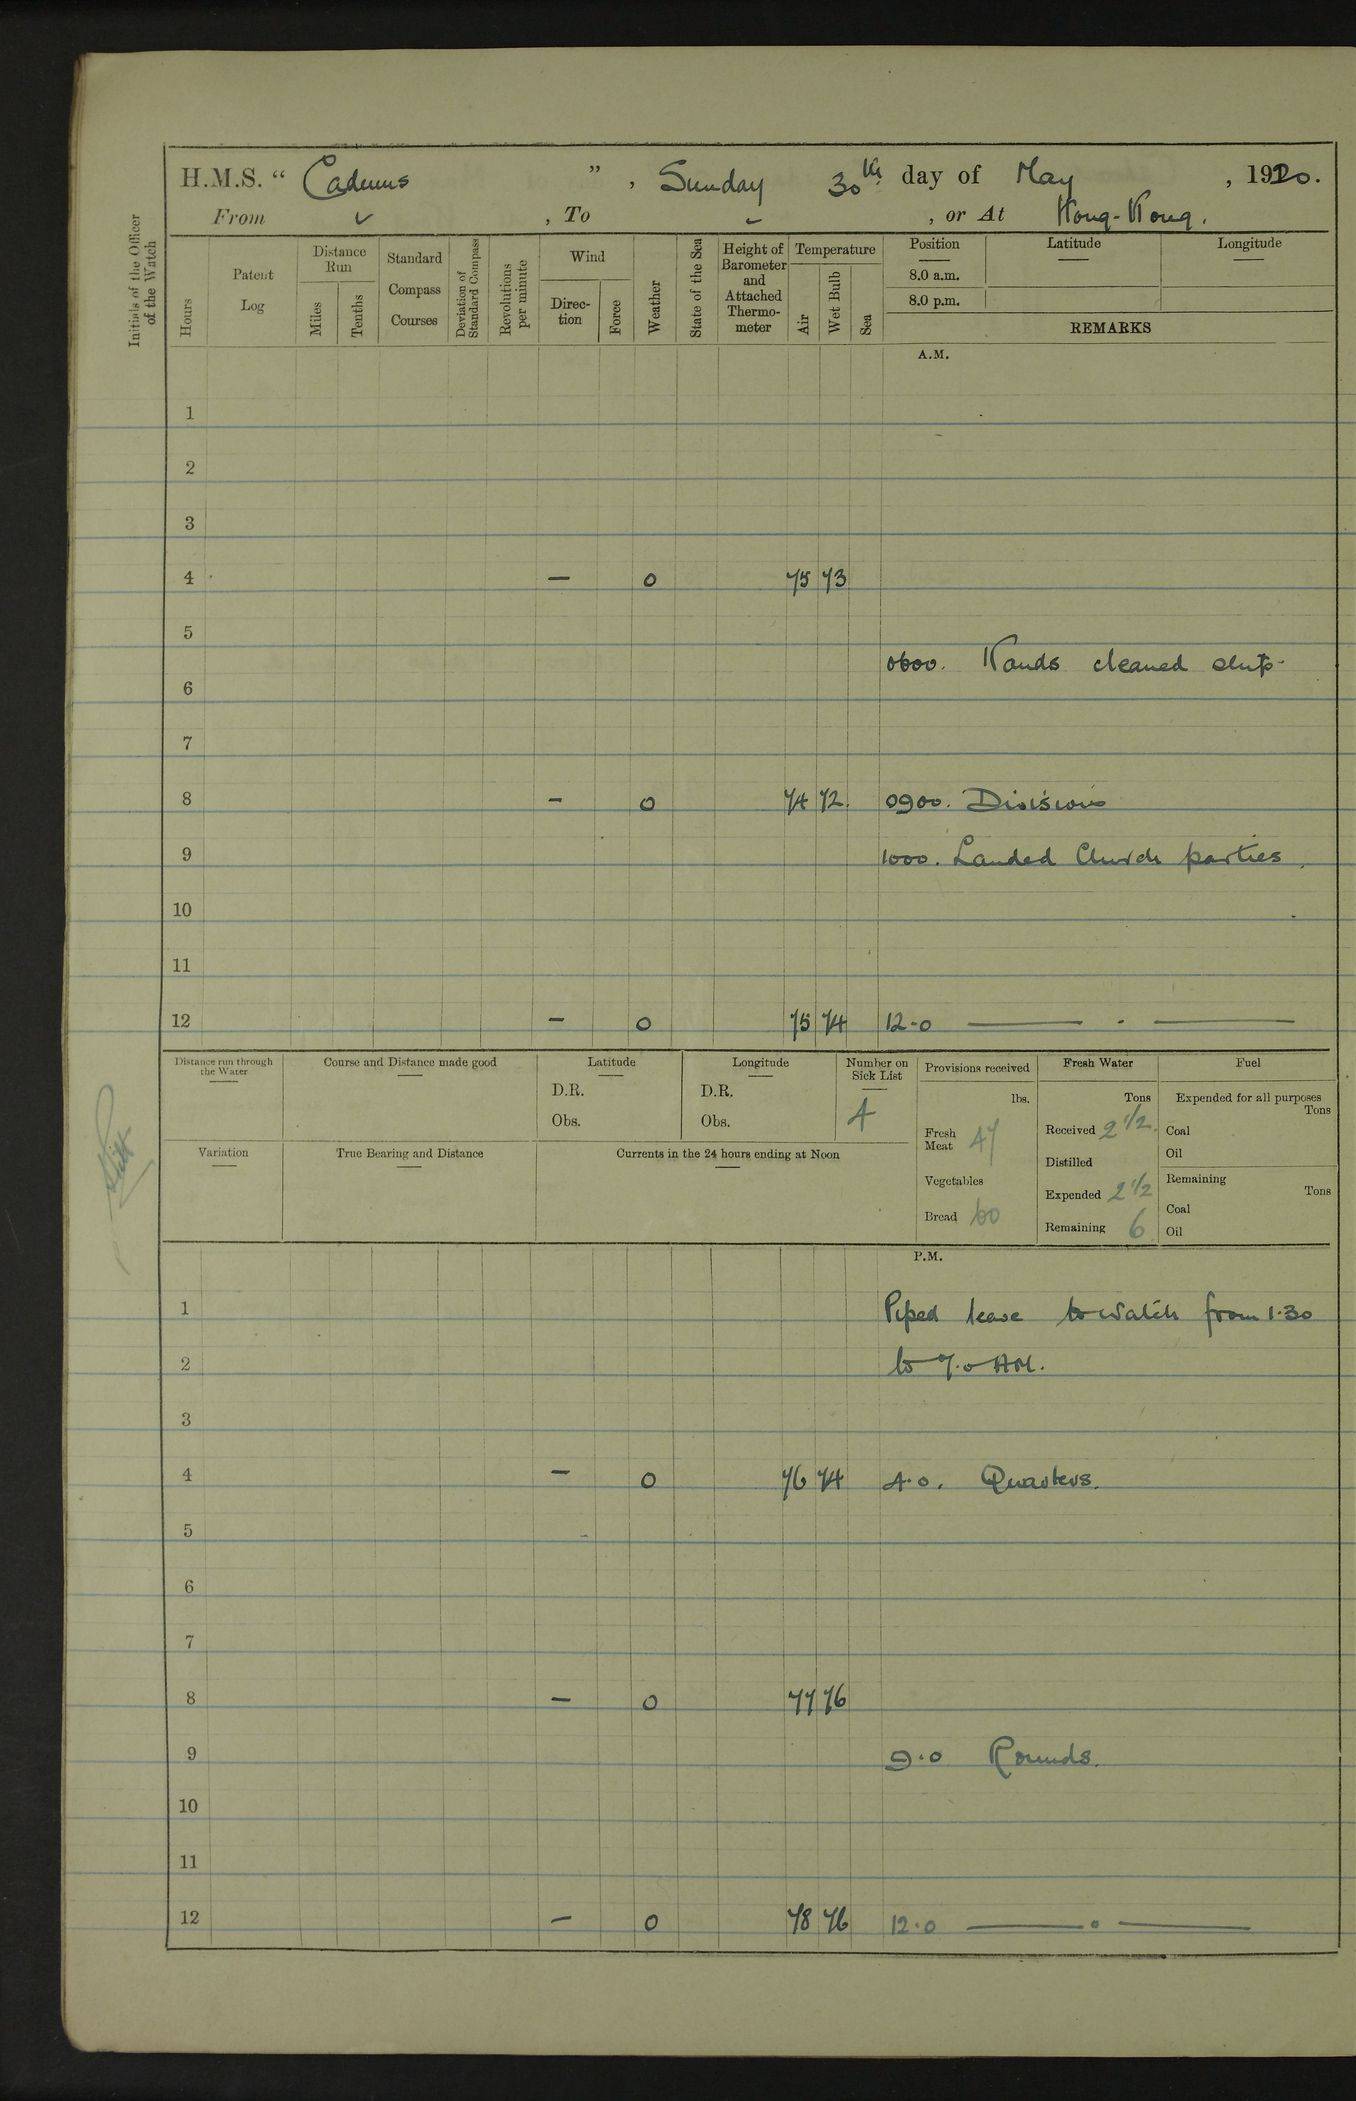 H.M.S. “ Cadmus ” , Sunday 30th day of May , 1920.
From ✓ , To – , or At Hong-Kong.
Initials of the Officer of the Watch
Hours
Patent Log
Distance Run
Miles
Tenths
Standard Compass Courses
Deviation of Standard Compass
Revolutions per minute
Wind
Direc-tion
Force
Weather
State of the Sea
Height of Barometer and Attached Thermo-meter
Temperature
Air
Wet Bulb
Sea
Position
8.0 a.m.
8.0 p.m.
Latitude
Longitude
REMARKS
A.M.
1
2
3
4 — 0 75 73
5
0600. Hands cleaned ship.
6
7
8 — 0 74 72. 0900. Divisions
9 1000. Landed Church parties.
10
11
12 — 0 75 74 12.0 —— . ——
Distance run through the Water
Course and Distance made good
Latitude
D.R.
Obs.
Longitude
D.R.
Obs.
Number on Sick List
4
Provisions received
lbs.
Fresh Meat 47
Vegetables
Bread 60
Fresh Water
Tons
Received 2 1/2.
Distilled
Expended 2 1/2
Remaining 6
Fuel
Expended for all purposes
Tons
Coal
Oil
Remaining
Tons
Coal
Oil
Variation
True Bearing and Distance
Currents in the 24 hours ending at Noon
P.M.
1 Piped leave to watch from 1.30
2 to 7.0 AM.
3
4 — 0 76 74 4.0. Quarters.
5
6
7
8 — 0 77 76
9 9.0 Rounds.
10
11
12 — 0 78 76 12.0 —— . ——